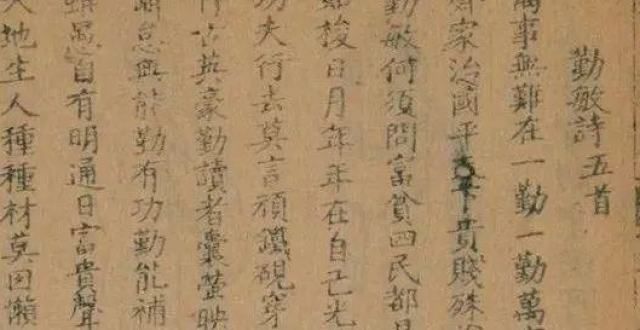 勤敏詩五首
萬事無難在一勤一勤萬
齊家治國平天下貴賤殊
勤敏何須問富貧四民都
梭日月年年在自己光
功夫行去莫言頑鐵硯穿
古英豪勤讀者囊螢映
怠無能勤有功勤能補
愚自有明通日富貴聲
天地生人種種材莫因懶